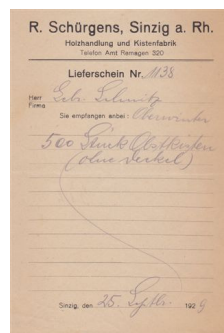 R. Schürgens, Sinzig a. Rh.
Holzhandlung und Kistenfabrik
Telefon Amt Remagen 320
Lieferschein Nr. 1138
Herr
Firma Gebr. Schmitz
Sie empfangen anbei: Oberwinter
500 Stück Obstkisten
(ohne Deckel)
Sinzig, den 25. Septbr. 1929